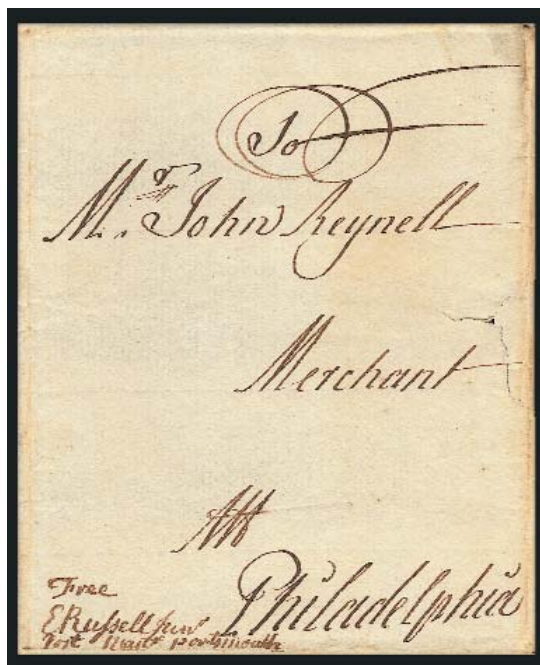 To
Mr. John Reynell
Merchant
Att
Philadelphia
Free
E Russell Junr
Post Mastr Portsmouth